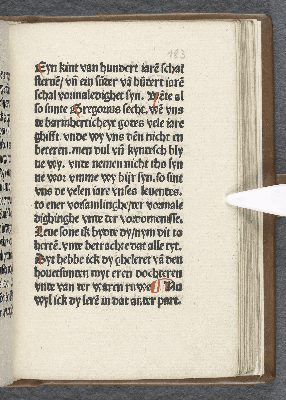 183
Eyn kint van hundert iarē schal
steruē/ vn̄ ein sūder vā hūdert iarē
schal vormaledighet syn. Wēte al
so sunte Gregorius secht. wē vns
de barmherticheyt godes vele iare
ghifft. vnde wy vns dēn nicht en
beteren. men vul vn̄ kyndesch bly
ue wy. vnte nemen nicht tho syn
ne wor vmme wy hijr syn. so sint
vns de velen iare vnses leuendes.
to ener vorsamlinghe der vormale
dighinghe vnte der vordomenisse.
Leue sone ik bydde dy/nym dit to
hertē. vnte betrachte dat alle tyt.
Dyt hebbe ick dy gheleret vā den
houetsunten myt eren dochteren
vnte van der waren ruwe Nu
wyl ick dy lerē in dat ander part.